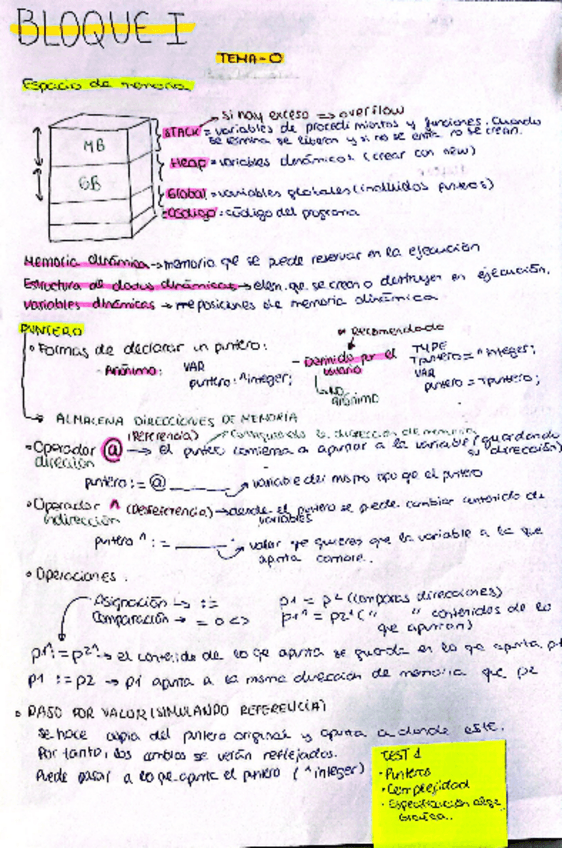 BLOQUE I
TEMA-0
Espacio de memoria
si hay exceso => overflow
STACK = variables de procedimientos y funciones. Cuando
se termina se liberan y si no se entra no se crean.
MB
Heap = variables dinámicas (crear con new)
GB
Global = variables globales (incluidos punteros)
Código = código del programa
Memoria dinámica → memoria qe se puede reservar en la ejecución
Estructura de datos dinámicas → elem. qe se crean o destruyen en ejecución.
Variables dinámicas → posiciones de memoria dinámica
PUNTERO
* Recomendado
• Formas de declarar un puntero:
- Anónimo: VAR
puntero: ^integer;
- Definido por el usuario
NO anónimo
TYPE
Tpuntero = ^integer;
VAR
puntero = Tpuntero;
→ ALMACENA DIRECCIONES DE MEMORIA
• Operador dirección @ (Referencia) → el puntero comienza a apuntar a la variable (guardando su dirección)
puntero := @______ variable del mismo tipo que el puntero
• Operador indirección ^ (Desreferencia) → desde el puntero se puede cambiar contenido de variables
puntero ^ := ______ valor qe quieres que la variable a la que
apunta cambie.
• Operaciones.
Asignación → :=
Comparación → = o <>
p1 = p2 (comparas direcciones)
p1^ = p2^ (" " contenidos de lo
qe apuntan)
p1^ := p2^ → el contenido de lo qe apunta se guarda en lo qe apunta p1
p1 := p2 → p1 apunta a la misma dirección de memoria que p2
• PASO POR VALOR (SIMULANDO REFERENCIA)
Se hace copia del puntero original y apunta a donde este.
Por tanto, los cambios se verán reflejados.
Puede pasar a lo qe apunta el puntero (^integer)
TEST 1
• Punteros
• Complejidad
• Especificación